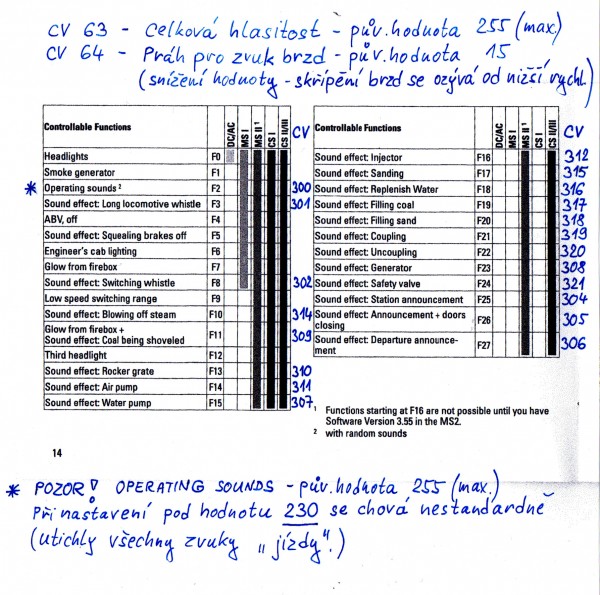 CV 63 - Celková hlasitost - pův. hodnota 255 (max)
CV 64 - Práh pro zvuk brzd - pův. hodnota 15
(snížení hodnoty - skřípění brzd se ozývá od nižší rychl.)
Controllable Functions DC/AC MS I MS II 1 CS I CS II/III CV
Headlights F0
Smoke generator F1
* Operating sounds 2 F2 300
Sound effect: Long locomotive whistle F3 301
ABV, off F4
Sound effect: Squealing brakes off F5
Engineer's cab lighting F6
Glow from firebox F7
Sound effect: Switching whistle F8 302
Low speed switching range F9
Sound effect: Blowing off steam F10 314
Glow from firebox +
Sound effect: Coal being shoveled F11 309
Third headlight F12
Sound effect: Rocker grate F13 310
Sound effect: Air pump F14 311
Sound effect: Water pump F15 307
Controllable Functions DC/AC MS I MS II 1 CS I CS II/III CV
Sound effect: Injector F16 312
Sound effect: Sanding F17 315
Sound effect: Replenish Water F18 316
Sound effect: Filling coal F19 317
Sound effect: Filling sand F20 318
Sound effect: Coupling F21 319
Sound effect: Uncoupling F22 320
Sound effect: Generator F23 308
Sound effect: Safety valve F24 321
Sound effect: Station announcement F25 304
Sound effect: Announcement + doors
closing F26 305
Sound effect: Departure announce-
ment F27 306
1 Functions starting at F16 are not possible until you have
Software Version 3.55 in the MS2.
2 with random sounds
14
* POZOR! OPERATING SOUNDS - pův. hodnota 255 (max.)
Při nastavení pod hodnotu 230 se chová nestandardně
(utichly všechny zvuky „jízdy".)